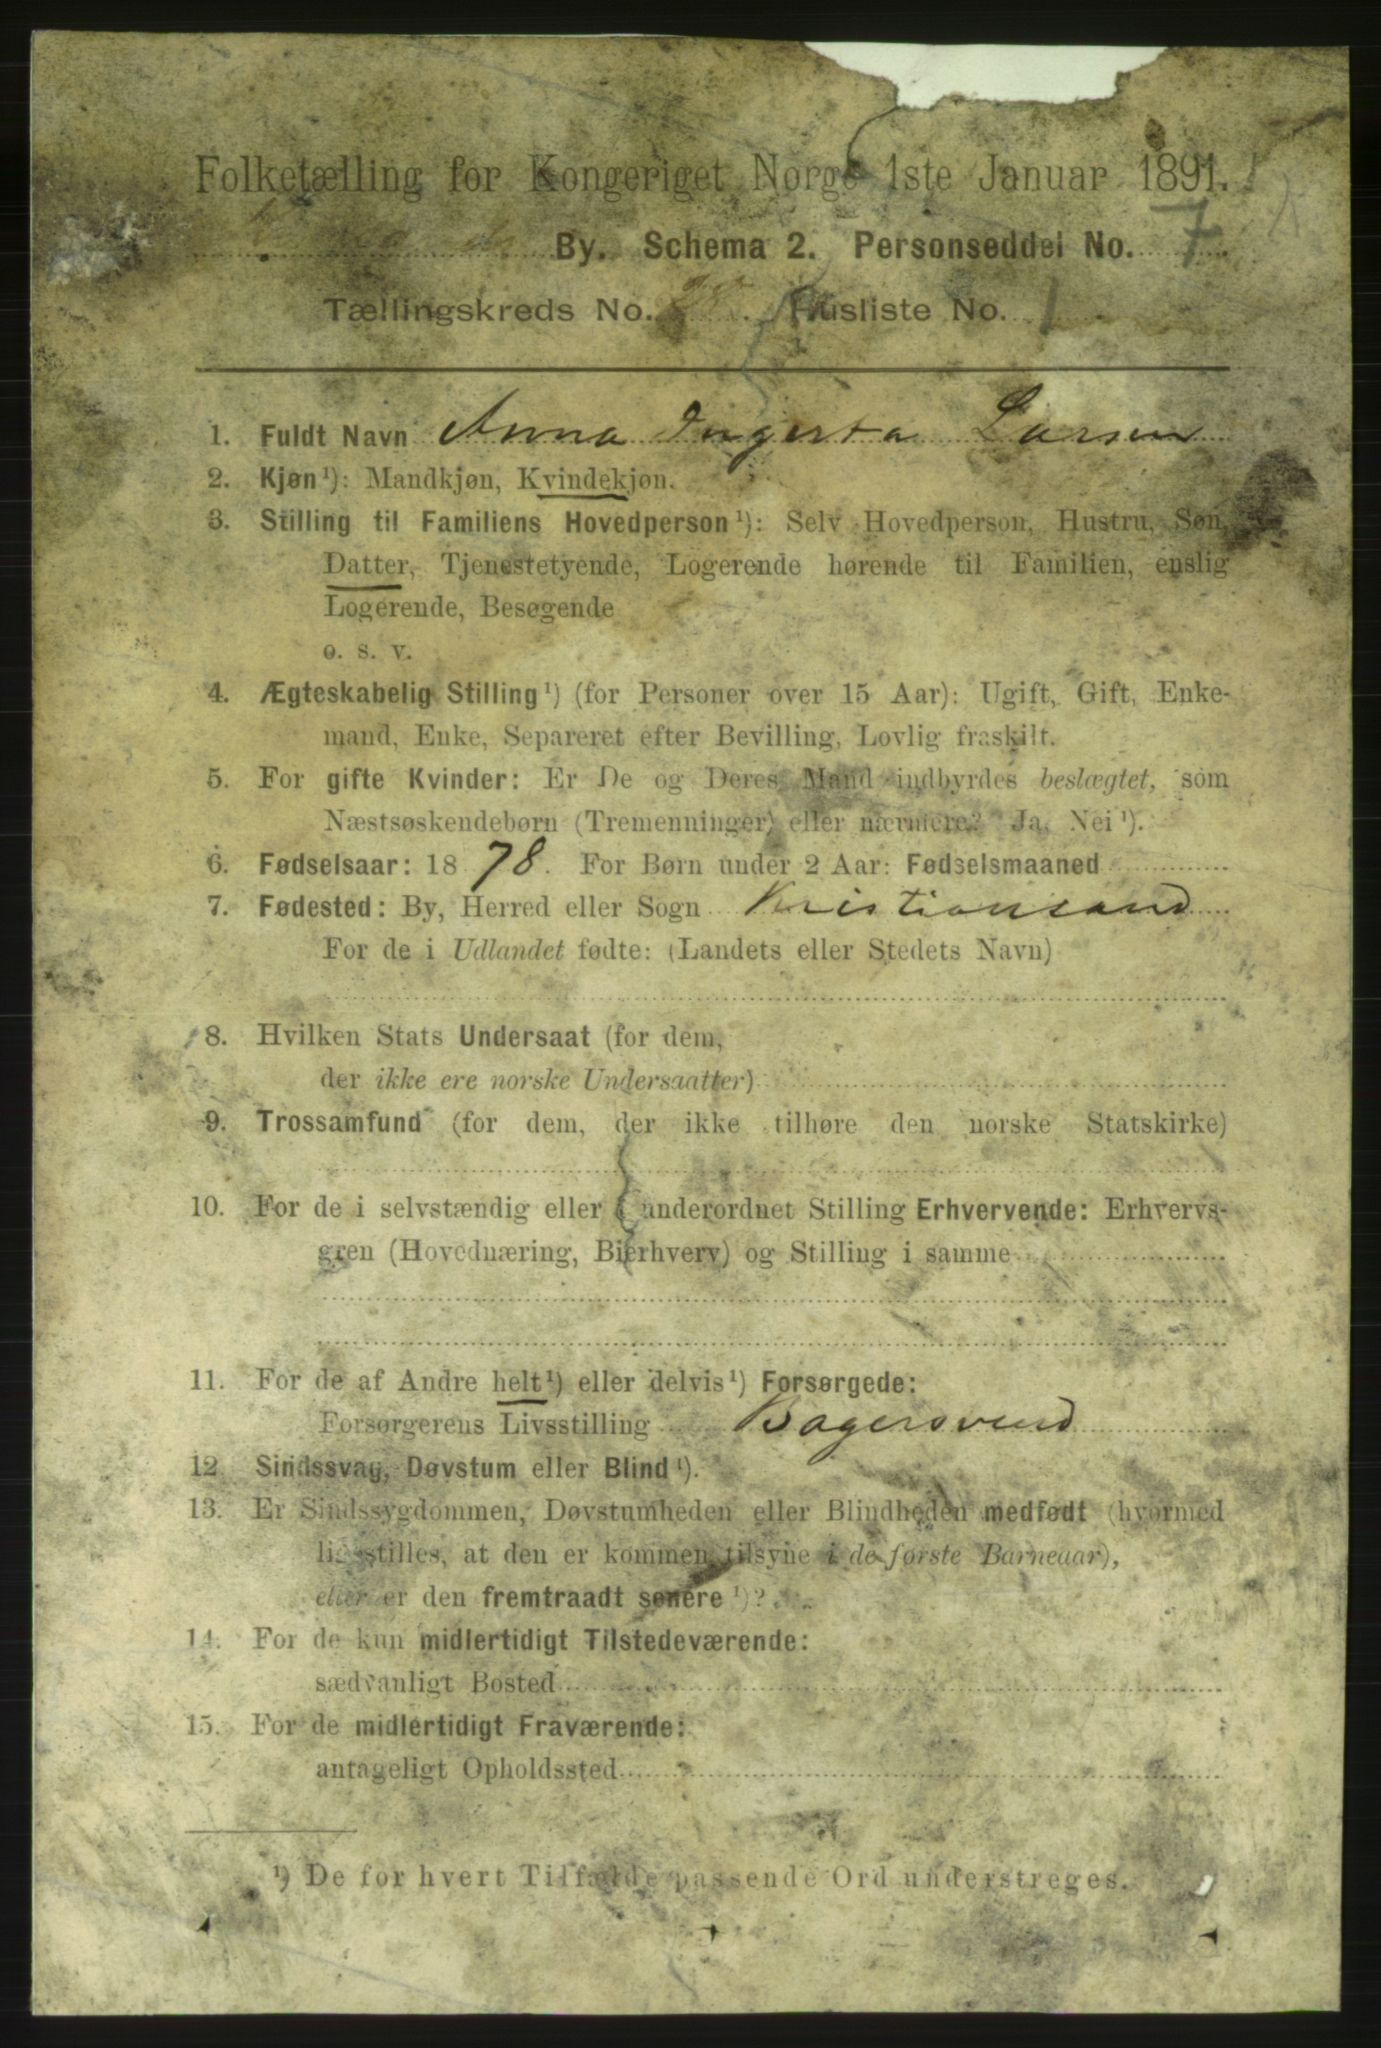 Folketælling for Kongeriget Norge 1ste Januar 1891.
By. Schema 2. Personseddel No. 7.
Tællingskreds No. 28. Husliste No. 1
1. Fuldt Navn Anna Ingerta Larsen
2. Kjøn ¹): Mandkjøn, Kvindekjøn.
3. Stilling til Familiens Hovedperson ¹): Selv Hovedperson, Hustru, Søn,
Datter, Tjenestetyende, Logerende hørende til Familien, enslig
Logerende, Besøgende
o. s. v.
4. Ægteskabelig Stilling ¹) (for Personer over 15 Aar): Ugift, Gift, Enke-
mand, Enke, Separeret efter Bevilling, Lovlig fraskilt.
5. For gifte Kvinder: Er De og Deres Mand indbyrdes beslægtet, som
Næstsøskendebørn (Tremenninger) eller nærmere? Ja, Nei ¹).
6. Fødselsaar: 1878. For Børn under 2 Aar: Fødselsmaaned
7. Fødested: By, Herred eller Sogn Kristiansand
For de i Udlandet fødte: (Landets eller Stedets Navn)
8. Hvilken Stats Undersaat (for dem,
der ikke ere norske Undersaatter)
9. Trossamfund (for dem, der ikke tilhøre den norske Statskirke)
10. For de i selvstændig eller underordnet Stilling Erhvervende: Erhvervs-
gren (Hovednæring, Bierhverv) og Stilling i samme
11. For de af Andre helt ¹) eller delvis ¹) Forsørgede:
Forsørgerens Livsstilling Bagersvend
12. Sindssvag, Døvstum eller Blind ¹).
13. Er Sindssygdommen, Døvstumheden eller Blindheden medfødt (hvormed
ligestilles, at den er kommen tilsyne i de første Barneaar),
eller er den fremtraadt senere ¹)?
14. For de kun midlertidigt Tilstedeværende:
sædvanligt Bosted
15. For de midlertidigt Fraværende:
antageligt Opholdssted
¹) De for hvert Tilfælde passende Ord understreges.